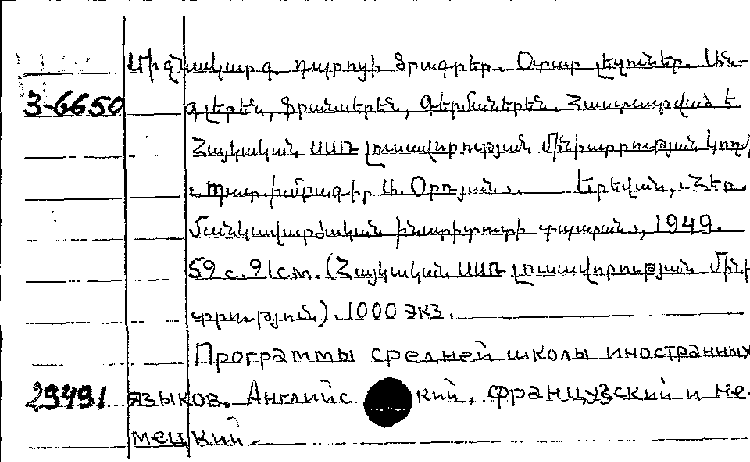 Միջնակարգ դպրոցի ծրագրեր. Օտար լեզուներ. Ան-
3-6650 գլերեն, ֆրանսերեն, գերմաներեն. Հաստատված է
Հայկական ՍՍՌ լուսավորության մինիստրության կող
պատ. խմբագիր Օրդյան. Երեվան,
մանկավարժական ինստիտուտի տպարան, 1949.
59 с. 21 см. (Հայկական ՍՍՌ լուսավորության մինի
տրություն). 1000 экз.
Программы средней школы иностранных
29491 языков. Английский, французский и не-
мецкий.